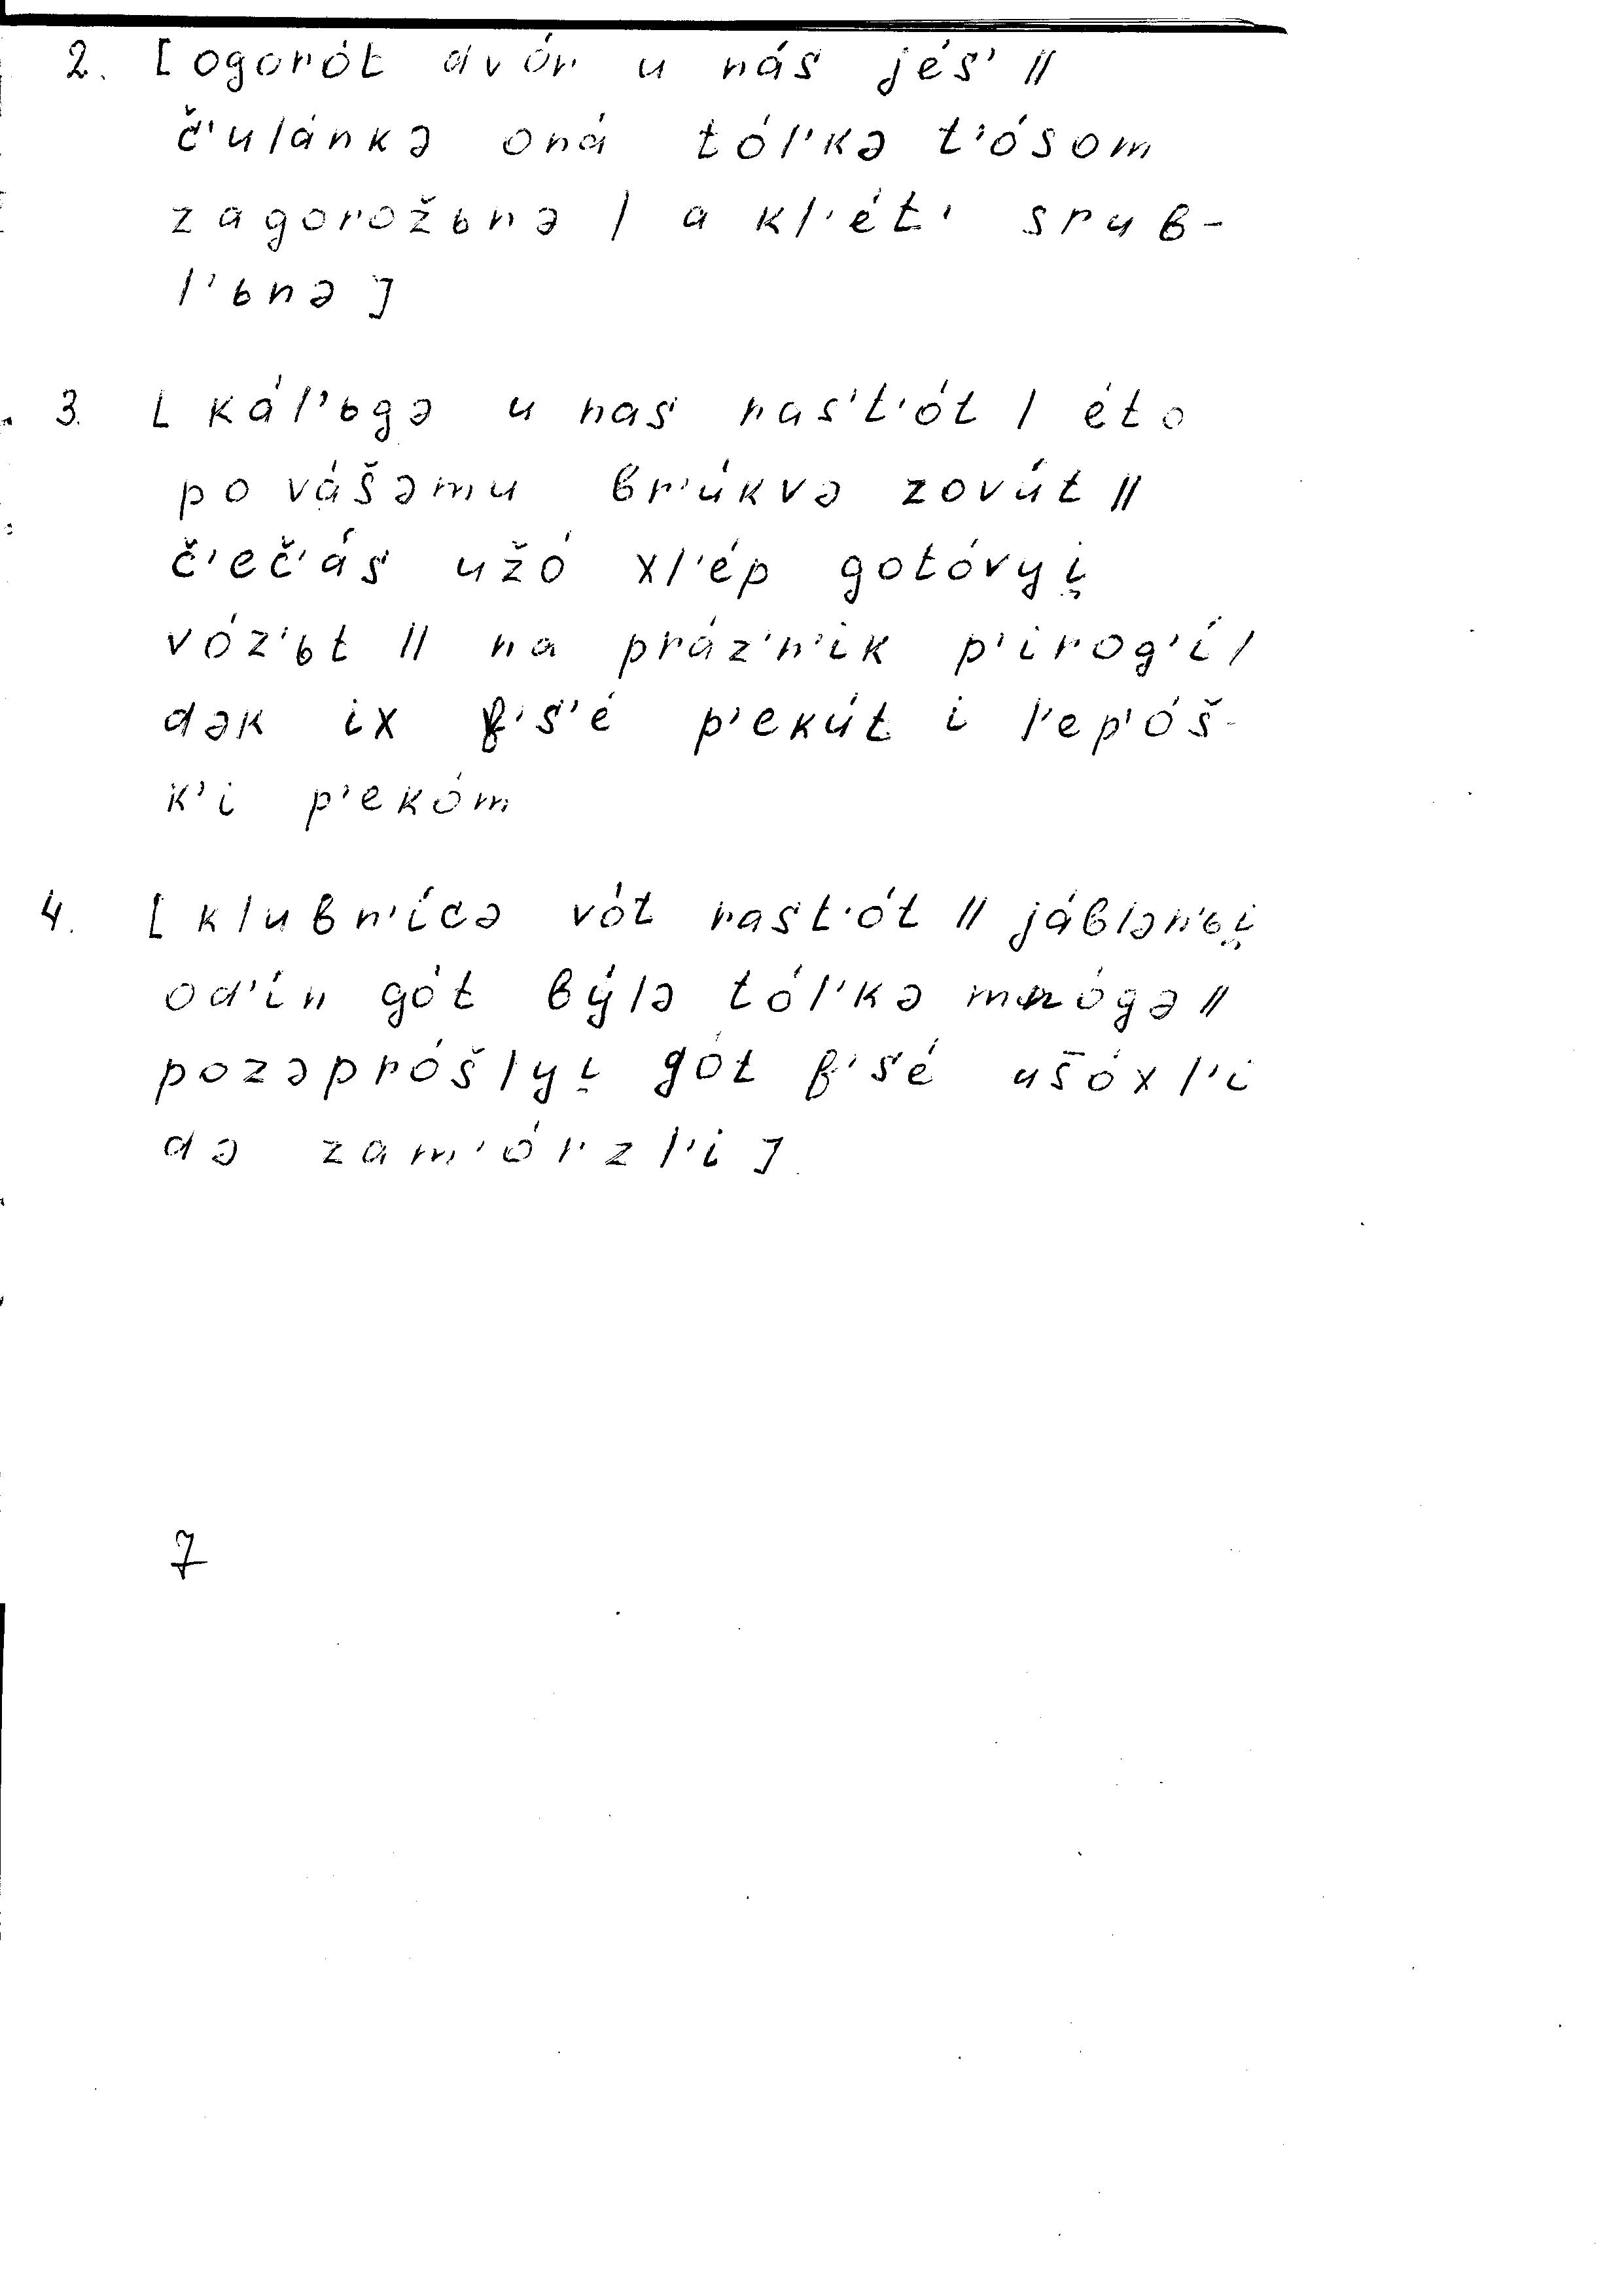 2. [ogorót dvór u nás jés' ||
č'ulánkə oná tól'kə t'ósom
zagorožьnə | a kl'ét' srub-
l'ьnə]
3. [kál'ьgə u nas ras't'ót | éto
po vášəmu br'úkvə zovút ||
č'eč'ás užó xl'ép gotóvyi̯
vóz'ьt || na práz'n'ik p'irog'í |
dək ix f's'é p'ekút i l'ep'óš-
k'i p'ekóm
4. [klubn'ícə vót rast'ót || jáblən'ьi̯
od'ín gót býlə tól'kə mnógə ||
pozəpróšlyi̯ gót f's'é uš̄óxl'i
də zam'órzl'i]
7